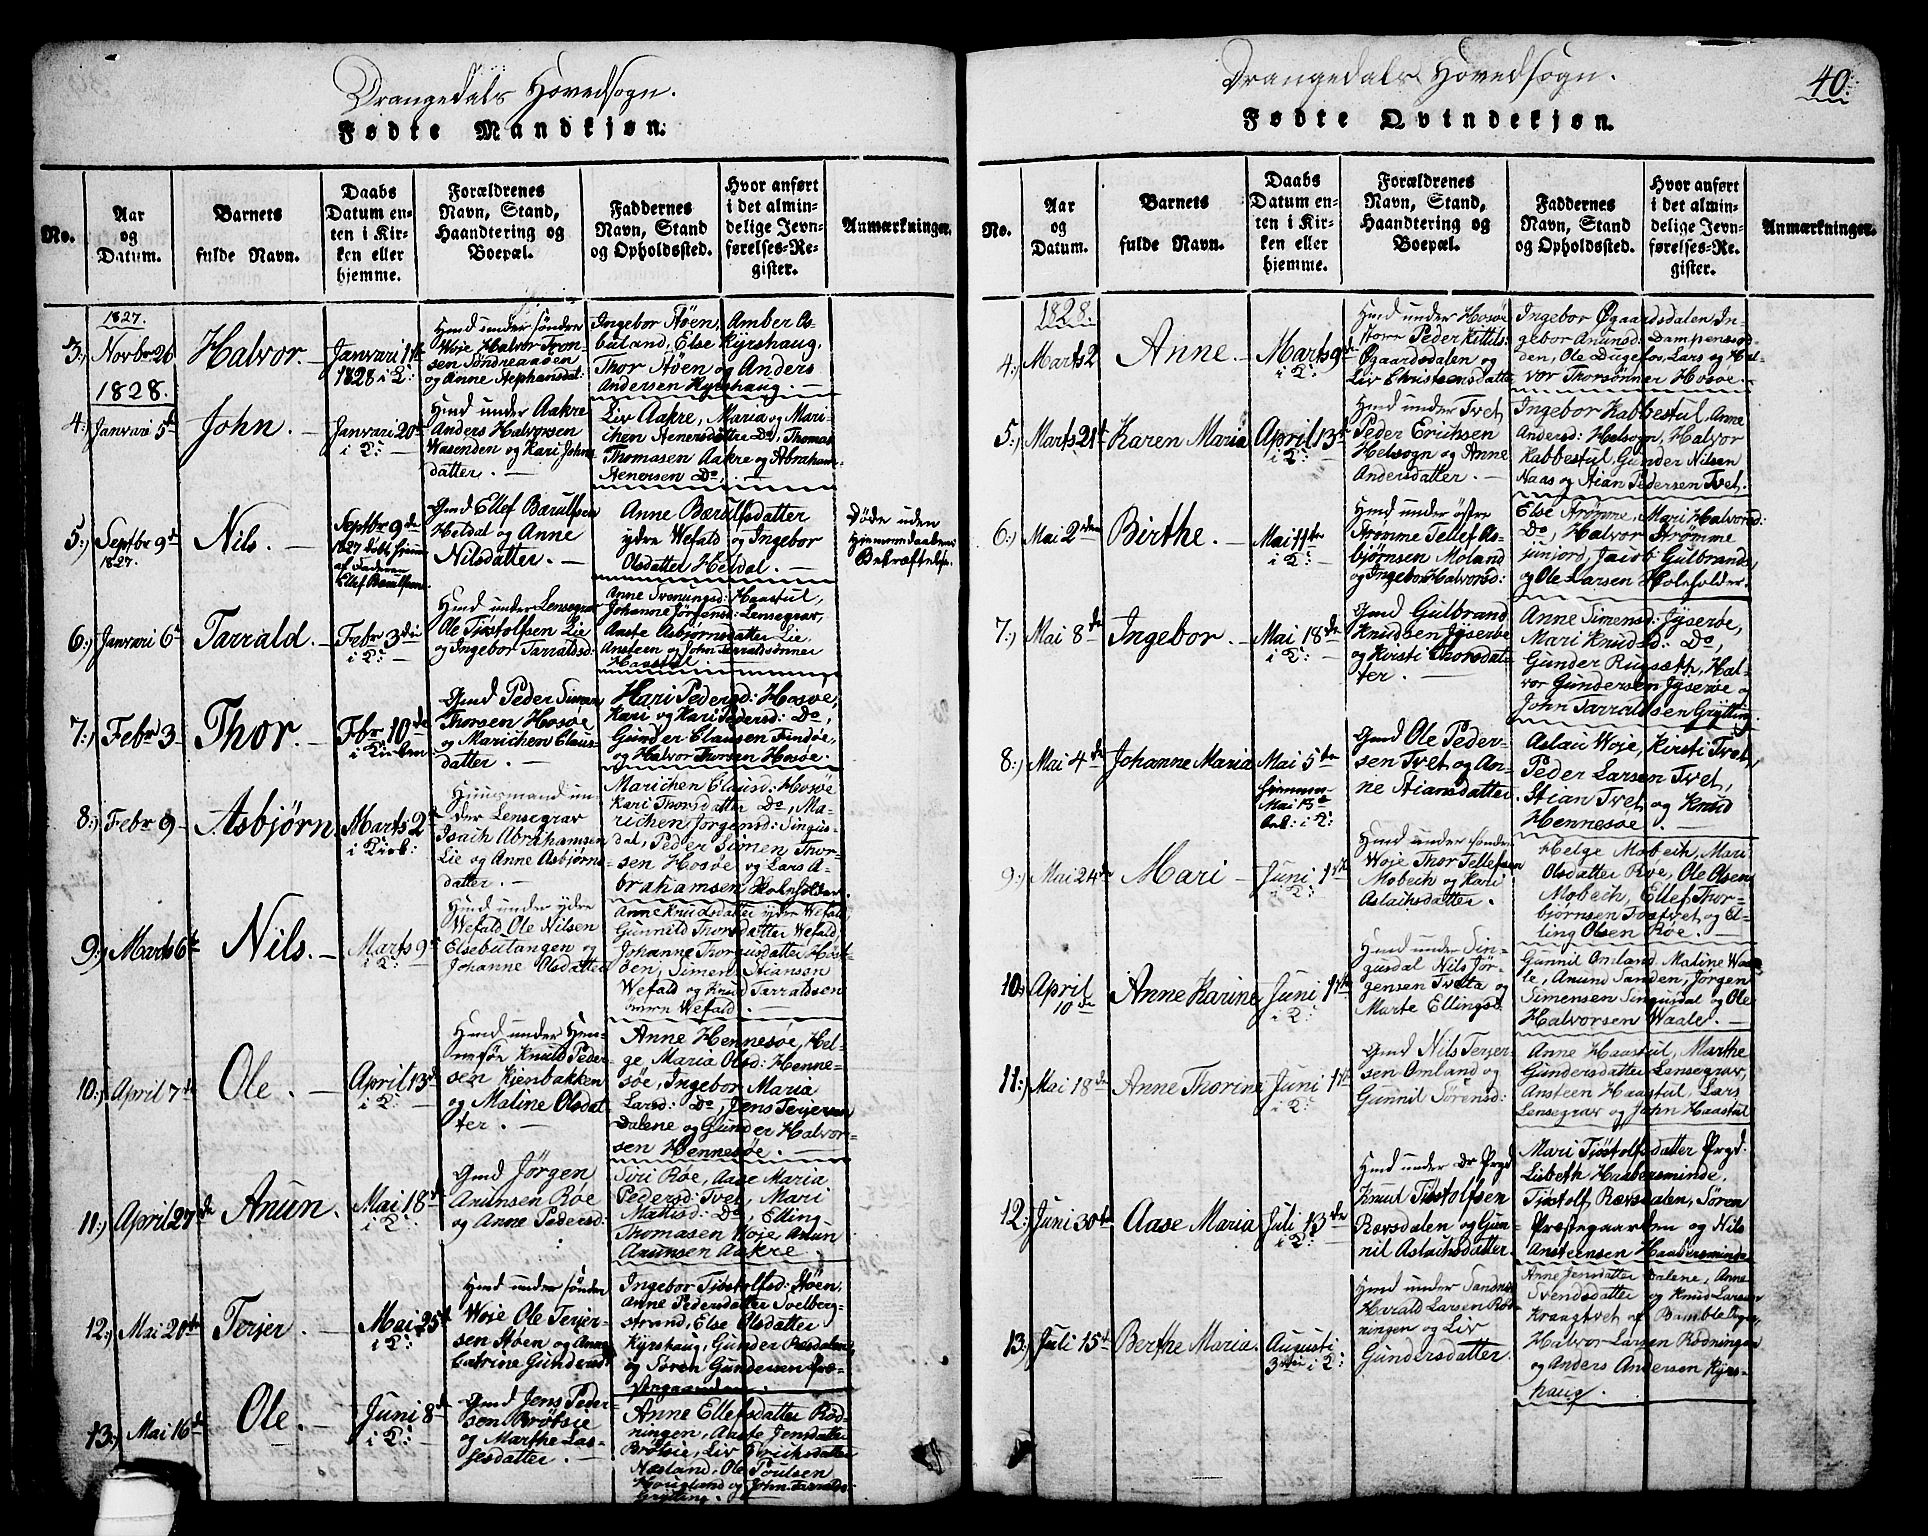 Drangedals Hovedsogn.
Fødte Mandkjøn.
No.
Aar
og
Datum.
Barnets
fulde Navn.
Daabs
Datum en-
ten i Kir-
ken eller
hjemme.
Forældrenes
Navn, Stand,
Haandtering og
Boepæl.
Faddernes
Navn, Stand
og Opholdssted.
Hvor anført
i det almin-
delige Jevn-
førelses-Re-
gister.
Anmærkninger.
1827.
3:) Novbr 26
Halvor.
Janvari 1ste
1828 i K:
Hmd under søndre
Woje Halvor Tron-
sen Sondreaasen
og Anne Stephansdat:
Ingebor Støen, Amber As-
beland, Else Kyrshaug,
Thor Støen og Anders
Andersen Kyrshaug.
1828.
4:) Janvari 5te
John.
Janvari 20de
i K:
Hmd under Aakre
Anders Halvorsen
Wasenden og Kari Johns
datter.
Liv Aakre, Maria og Mari-
chen Stenersdatter Do, Thomas
Thomasen Aakre og Abraham
Stenersen Do.
5:) Septbr 9de
1827.
Nils.
Septbr 9de
1827 døbt hjemme
af Faderen
Ellef Bærulfsen
Gmd Ellef Bærulfsen
Heldal og Anne
Nilsdatter.
Anne Bærulfsdatter
ydre Wefald og Ingebor
Olsdatter Heldal.
Døde uden
Hjemmedaabens
Bekræftelse.
6:) Janvari 6te
Tarrald.
Febr 3die
i K:
Hmd under Lensegrav
Ole Tiostolfsen Lie
og Ingebor Tarraldsd:
Anne Tronungsd: Haastul,
Johanne Jørgensd: Lensegrav,
Aaste Asbjørnsdatter Lie
Ansteen og John Tarraldsønner
Haastul.
7:) Febr 3
Thor.
Fbr 10de
i Kirken
Gmd Peder Simen
Thorsen Hosøe
og Marichen Claus-
datter.
Hari Pedersd: Hosøe,
Kari og Kari Pedersd: Do,
Gunder Clausen Findøe,
og Halvor Thorsen Hosøe.
8:) Febr 9
Asbjørn.
Marts 2den
i Kirk:
Huusmand un-
der Lensegrav
Isach Abrahamsen
Lie og Anne Asbjørns-
datter.
Marichen Clausd: Hosøe
Kari Thorsdatter Do, Ma-
richen Jorgensd: Singus-
dal, Peder Simen Thor-
sen Hosøe og Lars A-
brahamsen Holefolder.
9:) Marts 6te
Nils.
Marts 9de
i K:
Hmd under ydre
Wefald Ole Nilsen
Elsebutangen og
Johanne Olsdatter
Anne Knudsdatter ydre Wefald,
Gunnild Thorsdatter Wefald,
Johanne Thorgusdatter Host-
øen, Simen Stiansen
Wefald og Knud Tarraldsen
Wefald.
10:) April 7de
Ole.
April 13de
i K:
Hmd under Hen-
nesøe Knud Peder-
sen Kjenbakken
og Maline Olsdat-
ter.
Anne Hennesøe, Hel-
ge Maria Olsd: Henne-
søe, Ingebor Maria
Larsd: Do, Jens Terjersen
Dalene og Gunder Halvor-
sen Hennesøe.
11:) April 27de
Anun.
Mai 18de
i K:
Gmd Jørgen
Anunsen Roe
og Anne Pedersd:
Siri Røe, Aase Maria
Pedersd: Tvet, Mari
Mattisd: Do, Elling
Thomasen Woje Anun
Anunsen Aakre.
12:) Mai 20de
Terjer.
Mai 25de
i K:
Hmd under søndre
Woje Ole Terjer-
sen Støen og Anne
Catrine Gundersd:
Ingebor Tiostolfsd: Støen,
Anne Pedersdatter Tvelberg-
strand, Else Olsdatter
Kyrshaug, Gunder Ræsdalen
og Søren Gundersen Præ-
stegaarden.
13:) Mai 16de
Ole.
Juni 8de
i K:
Gmd Jens Peder-
sen Brøtsie
og Marthe Las-
sesdatter.
Anne Ellefsdatter Rød-
ningen, Aaste Jensdatter
Brøtsie, Liv Erichsdatter
Næsland, Ole Poulsen
Hougland og John Tarralds:
Grytting.
40.
Drangedals Hovedsogn.
Fødte Qvindekjøn.
No.
Aar
og
Datum.
Barnets
fulde Navn.
Daabs
Datum en-
ten i Kir-
ken eller
hjemme.
Forældrenes
Navn, Stand,
Haandtering og
Boepæl.
Faddernes
Navn, Stand
og Opholdssted.
Hvor anført
i det almin-
delige Jevn-
førelses-Re-
gister.
Anmærkninger.
1828.
4:) Marts 2
Anne.
Marts 9de
i K:
Hmd under Hosøe
store Peder Kittils:
Øgaardsdalen og
Liv Christensdatter
Ingebor Øgaardsdalen, In-
gebor Anunsd: Dampenesod-
den, Ole Dugefos, Lars og Hal-
vor Thorsønner Hosøe.
5:) Marts 21de
Karen Maria
April 13de
i K:
Hmd under Tvet
Peder Erichsen
Helsogn og Anne
Andersdatter.
Ingebor Kabbestul, Anne
Andersd: Helsogn, Halvor
Kabbestul, Gunder Nilsen
Naas og Stian Pedersen Tvet.
6:) Mai 2den
Birthe.
Mai 11te
i K:
Hmd under østre
Strømme Tellef As-
bjørnsen Moland
og Ingebor Halvorsd:
Else Strømme, Mari Halvorsd:
Do, Halvor Strømme
junjord, Jacob Gulbrands:
og Ole Larsen Holefolder.
7:) Mai 8de
Ingebor.
Mai 18de
i K:
Gmd Gulbrand
Knudsen Jyserøe
og Kirsti Thorsdat-
ter.
Anne Simensd: Jyserøe,
Mari Knudsd: Do,
Gunder Rugsæth, Hal-
vor Gundersen Jyserøe og
John Tarraldsen Grytting.
8:) Mai 4de
Johanne Maria
Mai 5te
hjemme
Mai 15de
i K:
Gmd Ole Peder-
sen Tvet og An-
ne Stiansdatter.
Aslau Woje, Kirsti Tvet,
Peder Larsen Tvet,
Stian Tvet og Knud
Hennesøe.
9:) Mai 24de
Mari
Juni 1ste
i K:
Hmd under søndre
Woje Thor Tellefsen
Mobech og Kari
Aslachsdatter.
Helge Mobech, Mari
Olsdatter Roe, Ole Olsen
Mobech, Ellef Thor-
bjørnsen Fostvet og El-
ling Olsen Røe.
10:) April
10de
Anne Karine
Juni 1ste
i K:
Hmd under Sin-
gusdal Nils Jør-
gensen Tveta og
Marte Ellingsd:
Gunnil Omland, Maline Waa-
le, Anund Sanden, Jørgen
Simensen Singusdal og Ole
Halvorsen Waale.
11:) Mai 18de
Anne Thorine
Juni 1ste
i K:
Gmd Nils Terjer-
sen Omland og
Gunnil Sørensd:
Anne Haastul, Marthe
Gundersdatter Lensegrav,
Ansteen Haastul, Lars
Lensegrav og John Haastul
12:) Juni 30te
Aase Maria
Juli 13de
i K:
Hmd under Dr Prgd
Knut Tiostolfsen
Rævsdalen og Gun-
nil Aslachsdatter.
Mari Tiostolfsdatter Prgd:
Lisbeth Haabersminde,
Tiostolf Rævsdalen, Søren
Præstegaarden og Nils
Ansteensen Haabersminde
13:) Juli 15de
Berthe Maria.
Augusti
3die i K:
Hmd under Sandnes
Harald Larsen Rød-
ningen og Liv
Gundersdatter.
Anne Jensdatter Dalene, Anne
Svendsdatter og Knud Larsen
Krangtvet af Bamble
Halvor Larsen Rødningen
og Anders Andersen Kyrs-
haug.